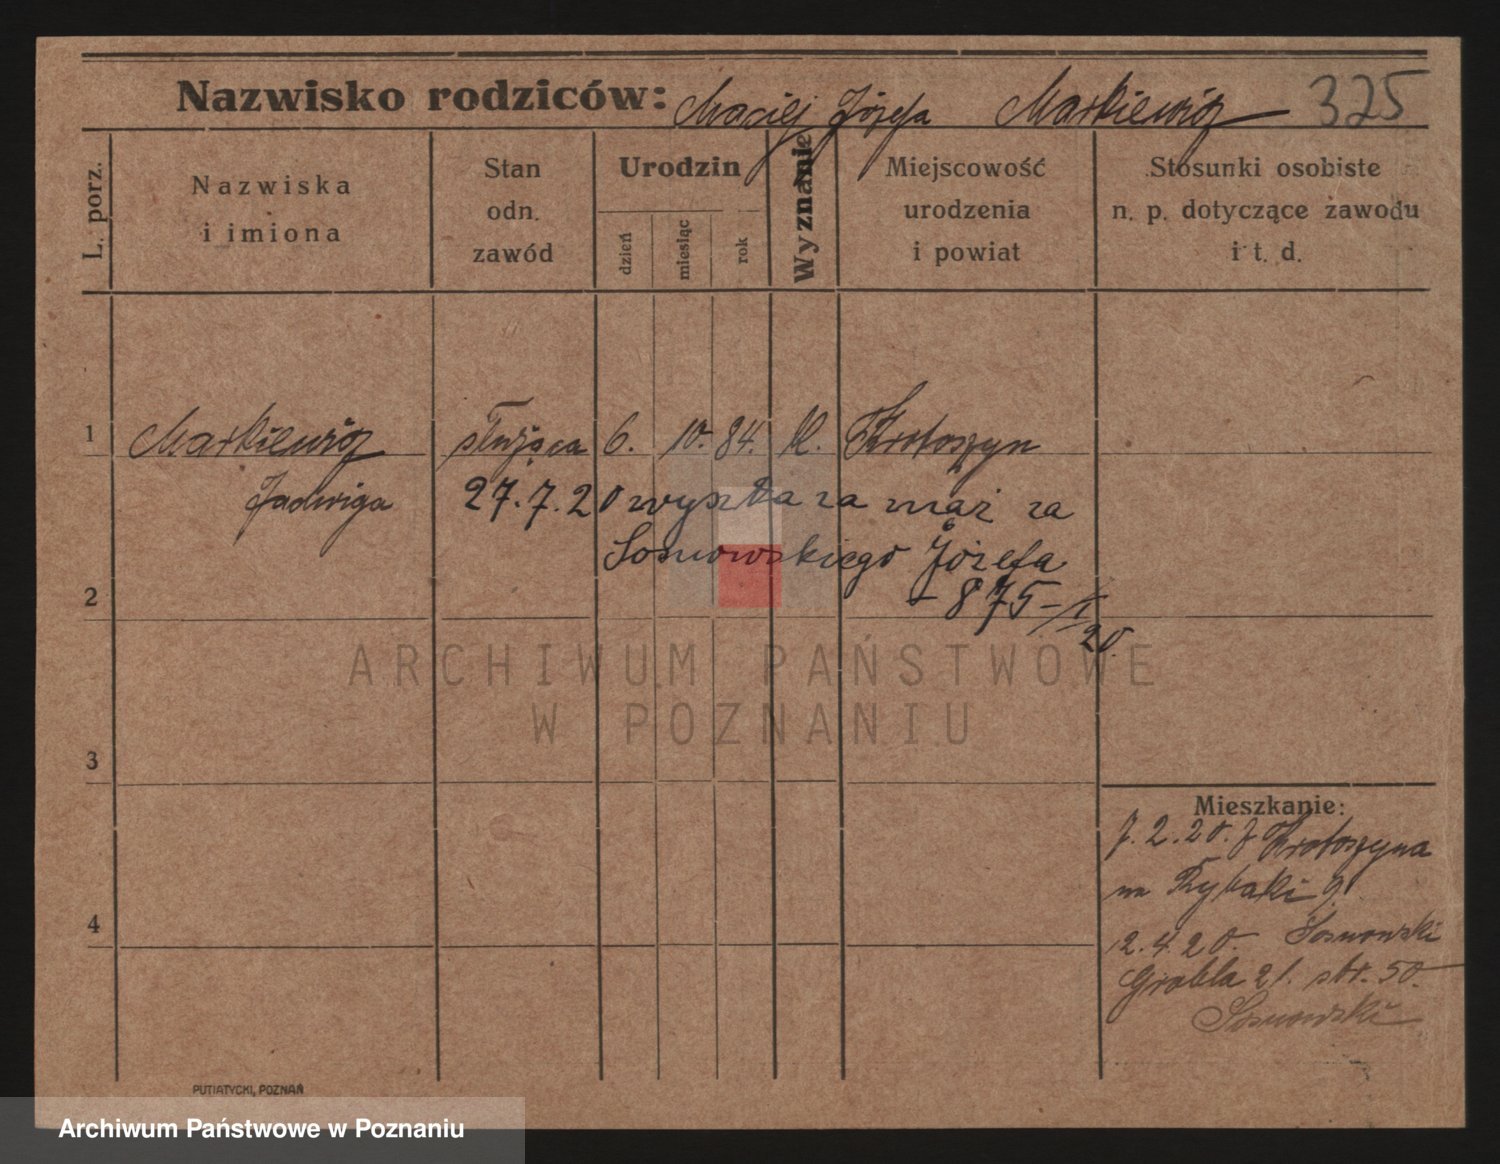 Nazwisko rodziców: Maciej Józefa Markiewicz 325
L. porz.
Nazwiska
i imiona
Stan
odn.
zawód
Urodzin
dzień
miesiąc
rok
Wyznanie
Miejscowość
urodzenia
i powiat
Stosunki osobiste
n. p. dotyczące zawodu
i t. d.
1 Markiewicz służąca 6. 10. 84. kl. Krotoszyn
Jadwiga 27.7.20 wyszła za mąż za
Sosnowskiego Józefa
2 - 875 - I/20.
ARCHIWUM PAŃSTWOWE
W POZNANIU
3
Mieszkanie:
7.2.20. z Krotoszyna
na Rybaki 9.
4
12.4.20. Sosnowski
Grobla 21. str. 50.
Sosnowski
PUTIATYCKI, POZNAŃ
Archiwum Państwowe w Poznaniu